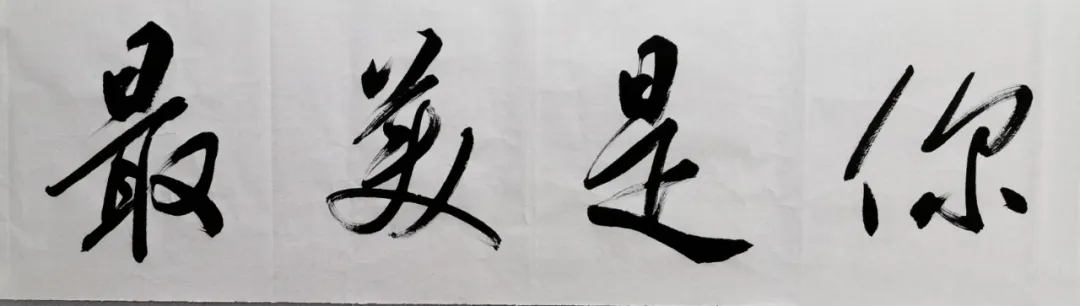 最美是你